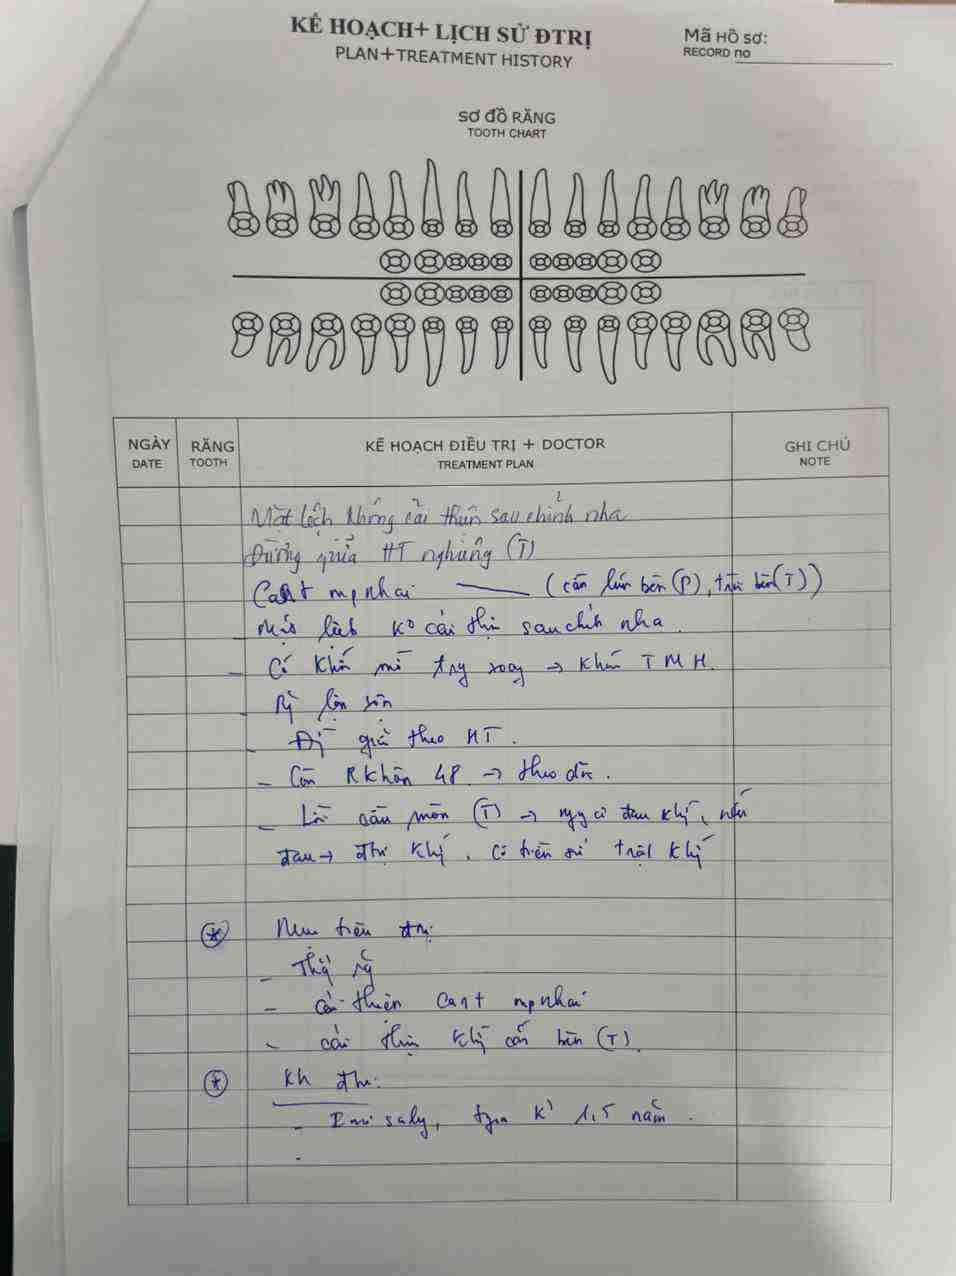 KẾ HOẠCH+ LỊCH SỬ ĐTRỊ
PLAN+TREATMENT HISTORY
Mã Hồ sơ:
RECORD no
SƠ ĐỒ RĂNG
TOOTH CHART
NGÀY
DATE
RĂNG
TOOTH
KẾ HOẠCH ĐIỀU TRỊ + DOCTOR
TREATMENT PLAN
GHI CHÚ
NOTE
Mặt lệch không cải thiện sau chỉnh nha
Đường giữa HT nghiêng (T)
Cant mp nhai (cắn lún bên (P), trồi bên (T))
Mặt lệch K° cải thiện sau chỉnh nha.
- Có khả → khám TMH.
-
- giá theo HT.
- Còn R khôn 48 → theo dõi.
- Lồi cầu mòn (T) → nguy cơ đau khớp, nếu
đau → đtrị khớp. Có tiền sử trật khớp
Mục tiêu đtrị:
- Thẳng răng
- cải thiện cant mp nhai
- cải thiện khớp cắn bên (T)
Kh đtrị:
- 1,5 năm.
-